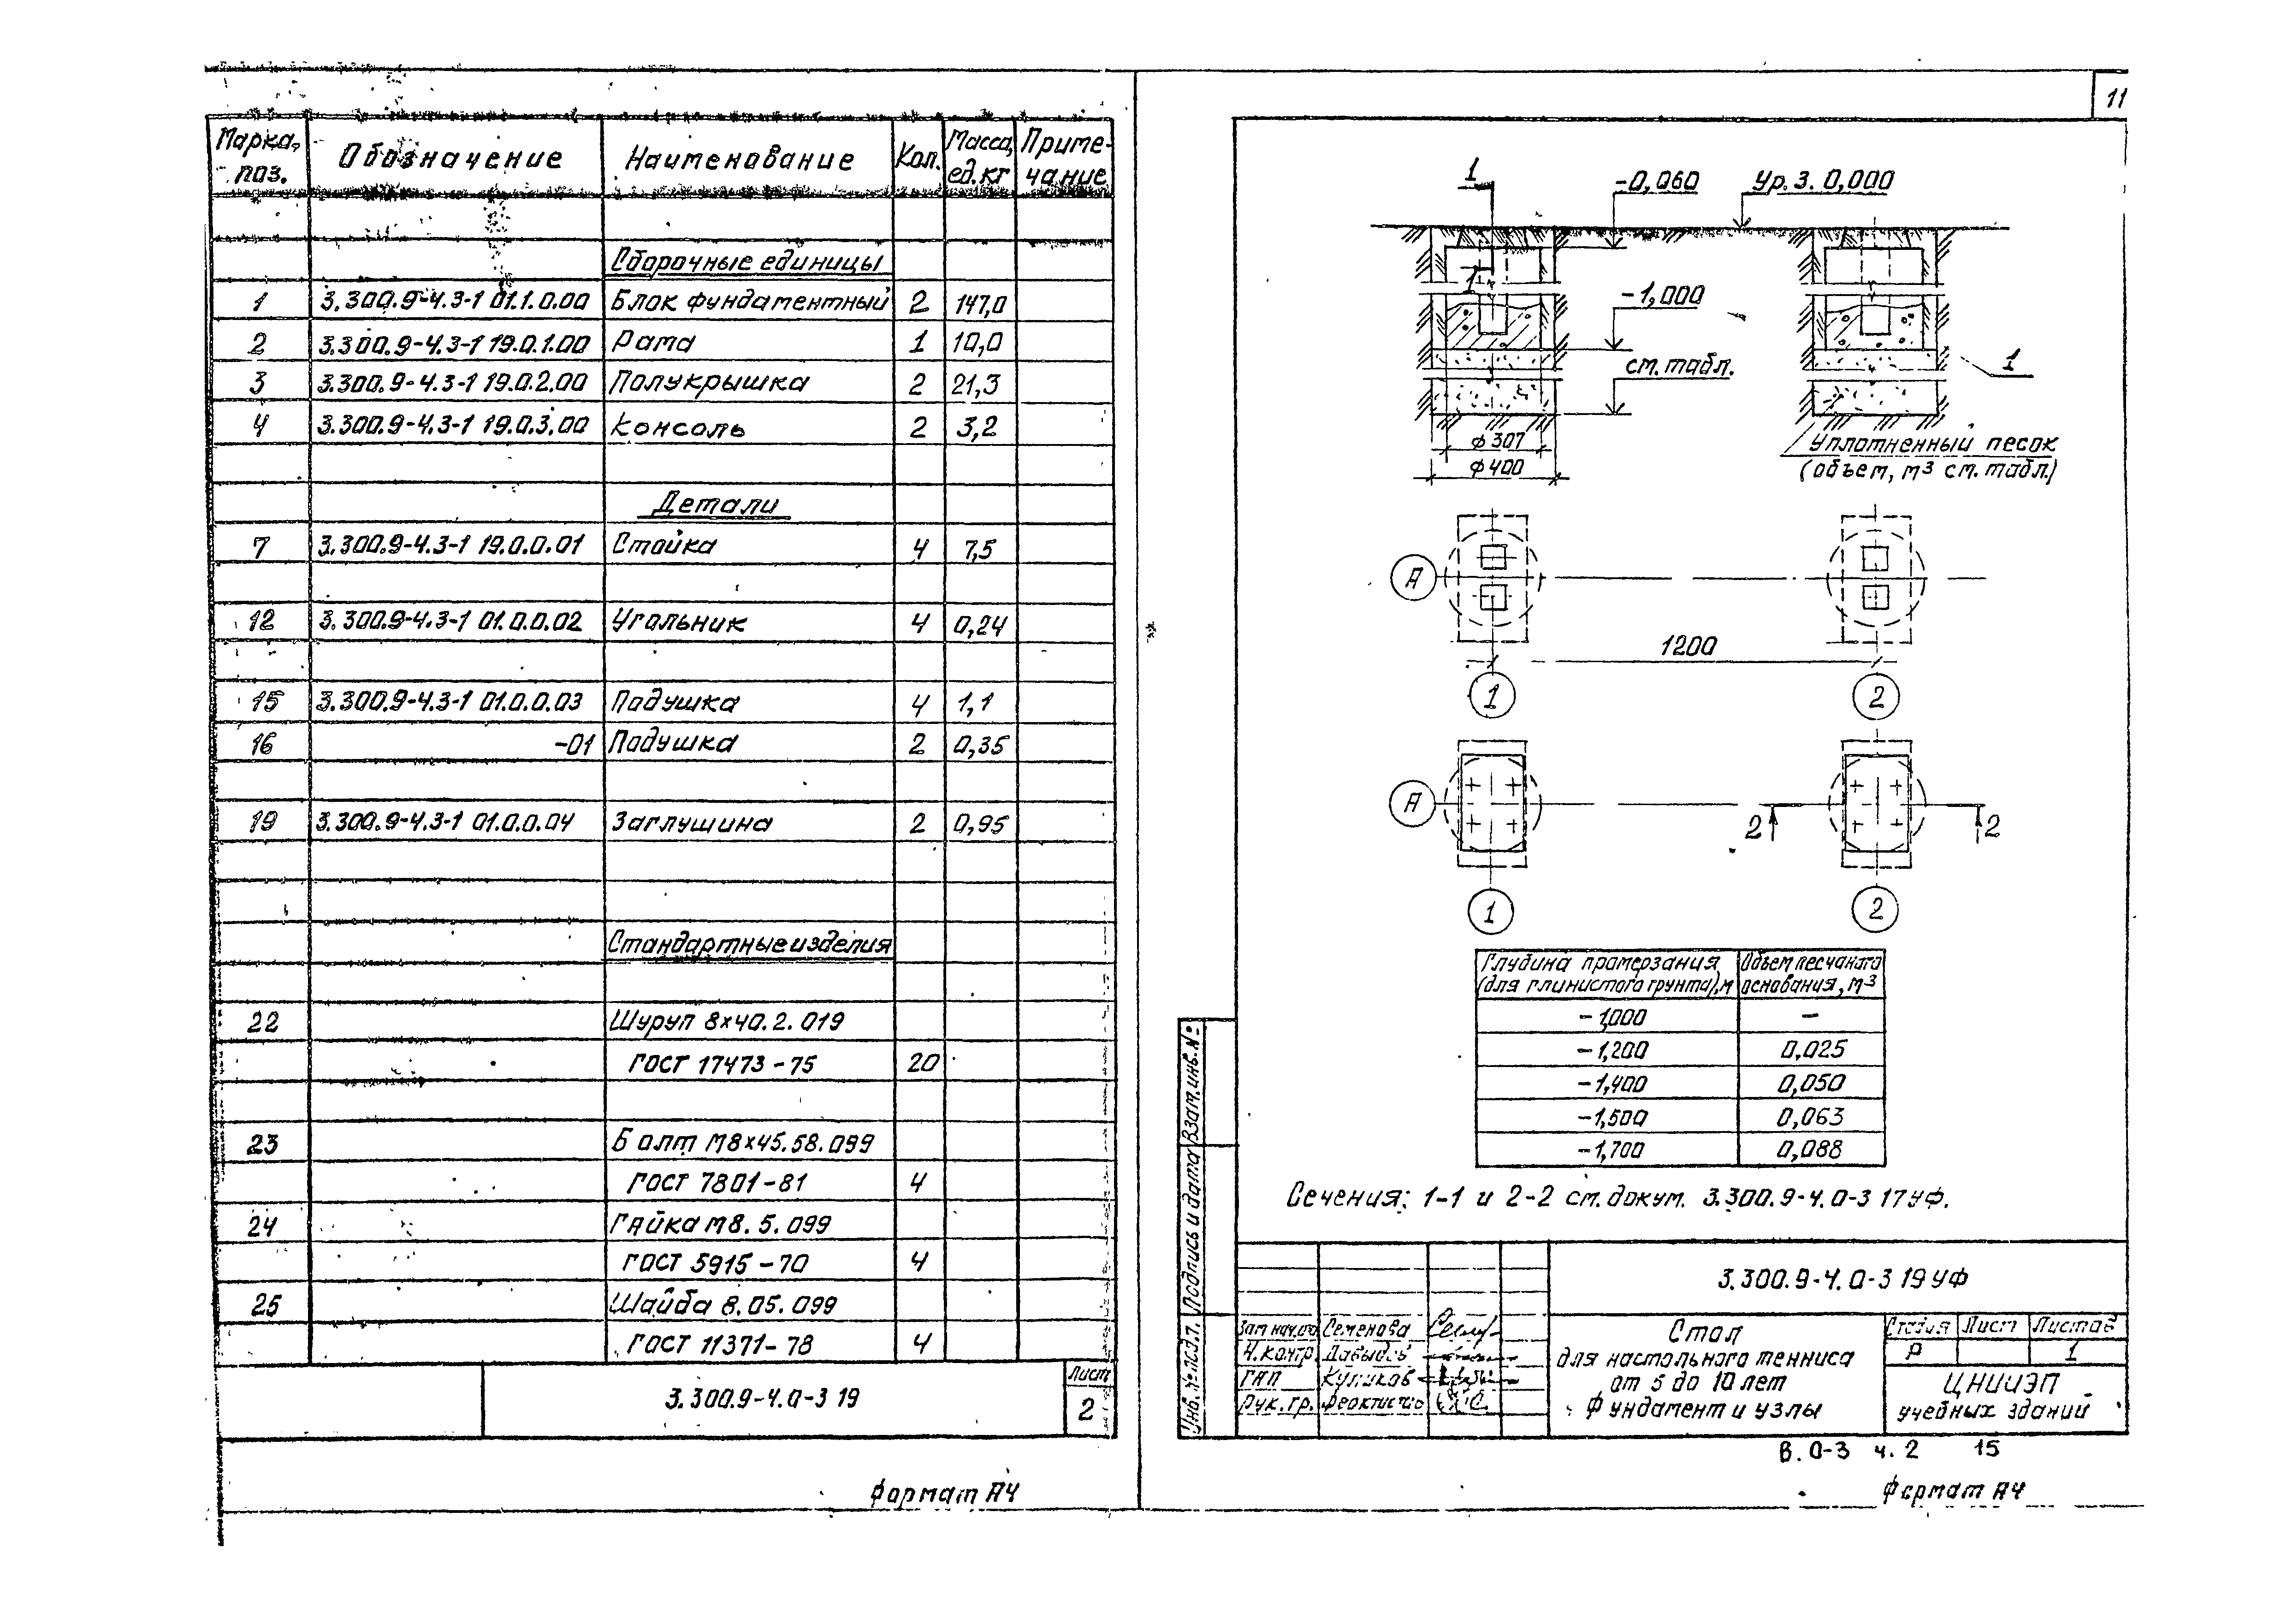 Марка, поз. Обозначение Наименование Кол. Масса, ед. кг Приме-чание
Сборочные единицы
1 3.300.9-4.3-1 01.1.0.00 Блок фундаментный 2 147,0
2 3.300.9-4.3-1 19.0.1.00 Рама 1 10,0
3 3.300.9-4.3-1 19.0.2.00 Полукрышка 2 21,3
4 3.300.9-4.3-1 19.0.3.00 Консоль 2 3,2
Детали
7 3.300.9-4.3-1 19.0.0.01 Стойка 4 7,5
12 3.300.9-4.3-1 01.0.0.02 Угольник 4 0,24
15 3.300.9-4.3-1 01.0.0.03 Подушка 4 1,1
16 -01 Подушка 2 0,35
19 3.300.9-4.3-1 01.0.0.04 Заглушина 2 0,95
Стандартные изделия
22 Шуруп 8х40.2.019
ГОСТ 17473-75 20
23 Болт М8х45.58.099
ГОСТ 7801-81 4
24 Гайка М8.5.099
ГОСТ 5915-70 4
25 Шайба 8.05.099
ГОСТ 11371-78 4
3.300.9-4.0-3 19
Лист
2
Формат А4
11
1
-0,060
Ур.з. 0,000
1
-1,000
см. табл.
1
ф307
ф400
Уплотненный песок
(объем, м³ см. табл.)
А
1200
1 2
А
2 2
1 2
Глубина промерзания (для глинистого грунта), м Объем песчаного основания, м³
-1,000 -
-1,200 0,025
-1,400 0,050
-1,500 0,063
-1,700 0,088
Сечения: 1-1 и 2-2 см. докум. 3.300.9-4.0-3 17УФ.
Инв. № подл. Подпись и дата Взам. инв. №
3.300.9-4.0-3 19 УФ
Зам нач. Семенова
Н.контр. Давыдов
ГАП Куликов
Рук. гр.
Стол
для настольного тенниса
от 5 до 10 лет
Фундамент и узлы
Стадия Лист Листов
Р 1
ЦНИИЭП
учебных зданий
В.0-3 ч.2 15
Формат А4